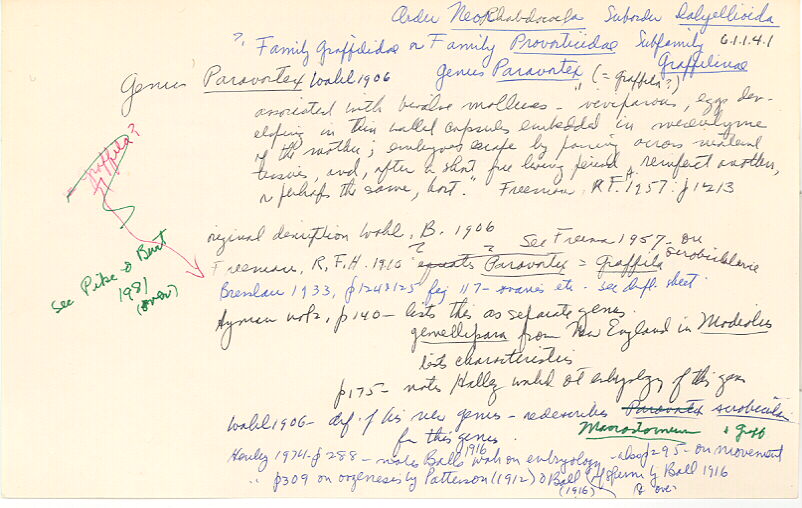 Order Neorhabdocoela Suborder Dalyellioida
? Family Graffilidae or Family Provorticidae Subfamily 6.1.1.4.1
Graffilinae
Genus Paravortex Wahl 1906 Genus Paravortex (= Graffila?)
"associated with bivalve molluscs - viviparous, eggs dev-
eloping in thin walled capsules embedded in mesenchyme
of the mother; embryos escape by passing across maternal
tissues, and, after a short free living period, reinfect another,
or perhaps the same, host." Freeman R.F.H. 1957: p 1213
Graffila?
original description Wahl, B. 1906
See Freeman 1957 - on scrobiculariae
Freeman, R.F.H. 1910 ? equates Paravortex ? = Graffila
See Pike & Burt
1981
(over)
Bresslau 1933, p 124 & 125 fig 117 - ovaries etc. see diff. sheet
Hyman vol 2, p 140 - lists this as separate genus.
gemellipara from New England in Modiolus
lists characteristics
p 175 - notes Hallez worked at embryology of this genus
Wahl 1906 - def. of his new genus - redescribes Paravortex scrobicula
for this genus. Macrostomum & Graff
Henley 1974 - p 288 - notes Ball's 1916 work on embryology - also p 295 - on movement
" p 309 on oogenesis by Patterson (1912) & Ball (1916) of sperm by Ball 1916
over